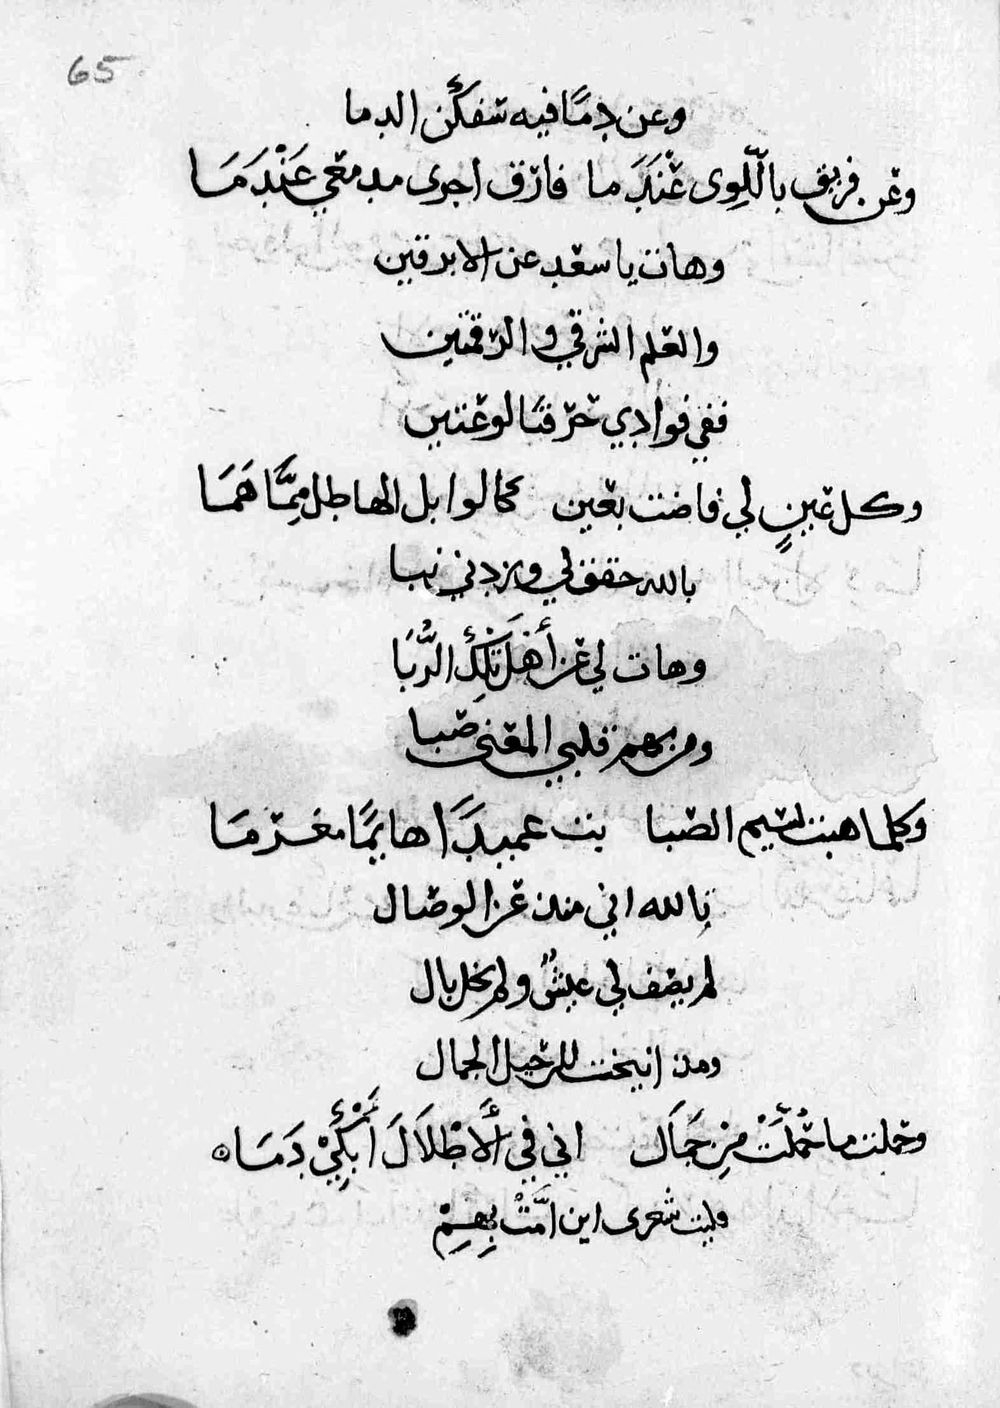 65
وعن دِمًا فيه سَفَكْن الدما
وعن فريق باللِّوى عَنَدَ ما فارق اجرى مدمعي عَنْدَمَا
وهات يا سعد عن الابرقين
والعلم الشرقي والرقمتين
ففي فوادي حرقتا لوعتين
وكل عينٍ لي فاضت بعين كالوابل الهاطل مِمَّا هَمَا
بالله حقق لي وزدني نبا
وهات لي عن أَهْلَ تِلْكَ الرُّبَا
ومن بهم قلبي المعنى صبا
وكلما هبت نسيم الصبا بت عميدًا هايمًا مغرمَا
بالله اني منذ عز الوصال
لم يصف لي عيشٌ ولم يخل بال
ومذ انيخت للرحيل الجمال
وحملت ما حُمِّلَتْ مِن جَمَال اني في أَلاطْلَالَ أَبْكِيْ دَمَا
فليت شعرى اين امَّتْ بِهِمِ